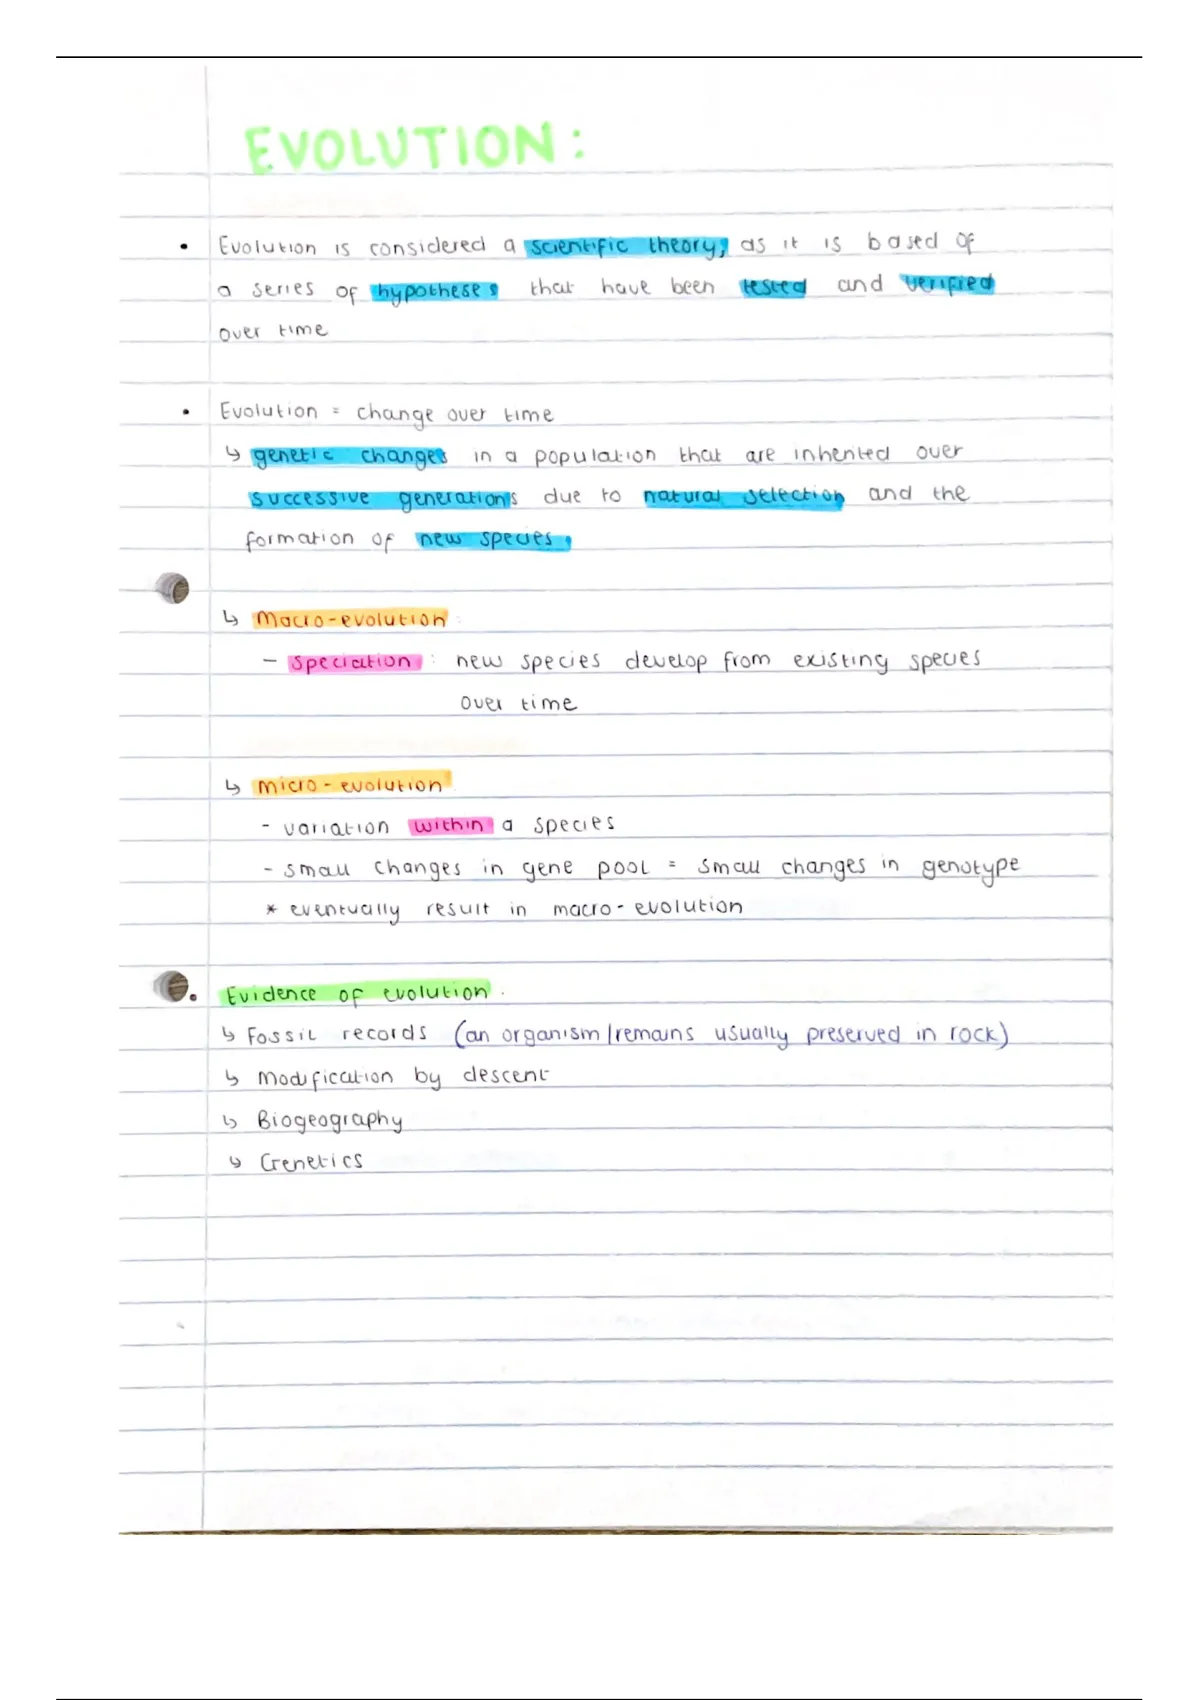 EVOLUTION:
• Evolution is considered a scientific theory, as it is based of
a series of hypotheses that have been tested and verified
over time
• Evolution = change over time
↳ genetic changes in a population that are inherited over
successive generations due to natural selection and the
formation of new species.
↳ Macro-evolution:
- Speciation: new species develop from existing species
over time
↳ Micro-evolution
- variation within a species
- small changes in gene pool = small changes in genotype
* eventually result in macro-evolution
• Evidence of evolution.
↳ Fossil records (an organism/remains usually preserved in rock)
↳ Modification by descent
↳ Biogeography
↳ Genetics